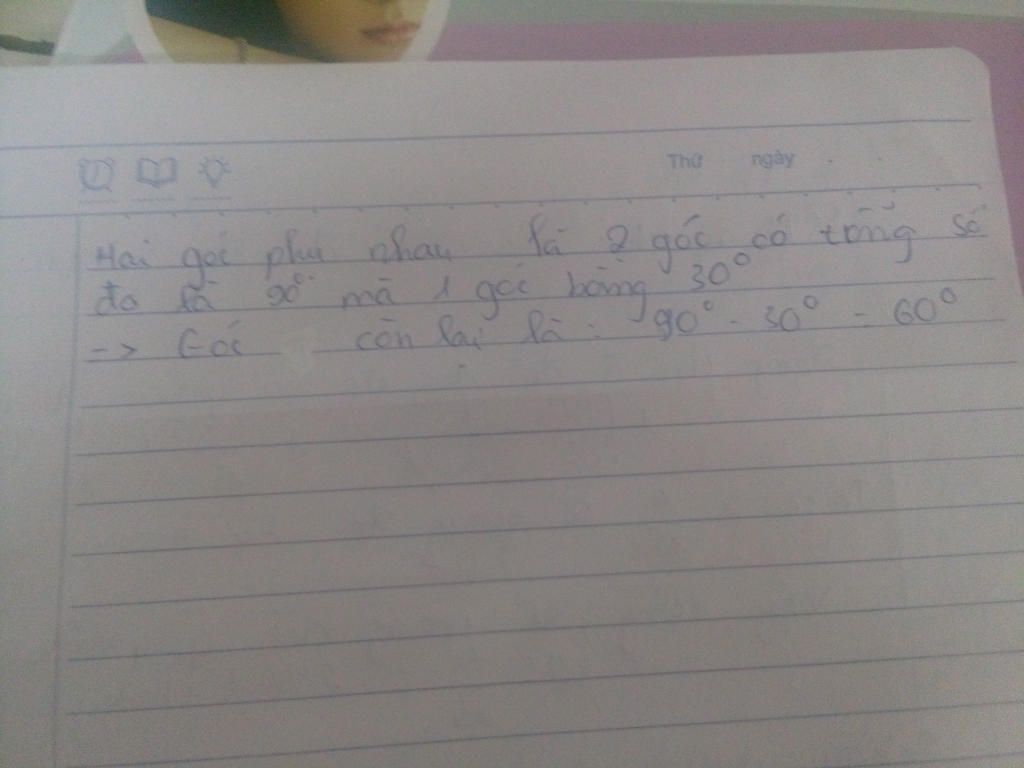 Thứ ngày
Hai góc phụ nhau là 2 góc có tổng số
đo là 90° mà 1 góc bằng 30°
-> Góc còn lại là: 90° - 30° = 60°